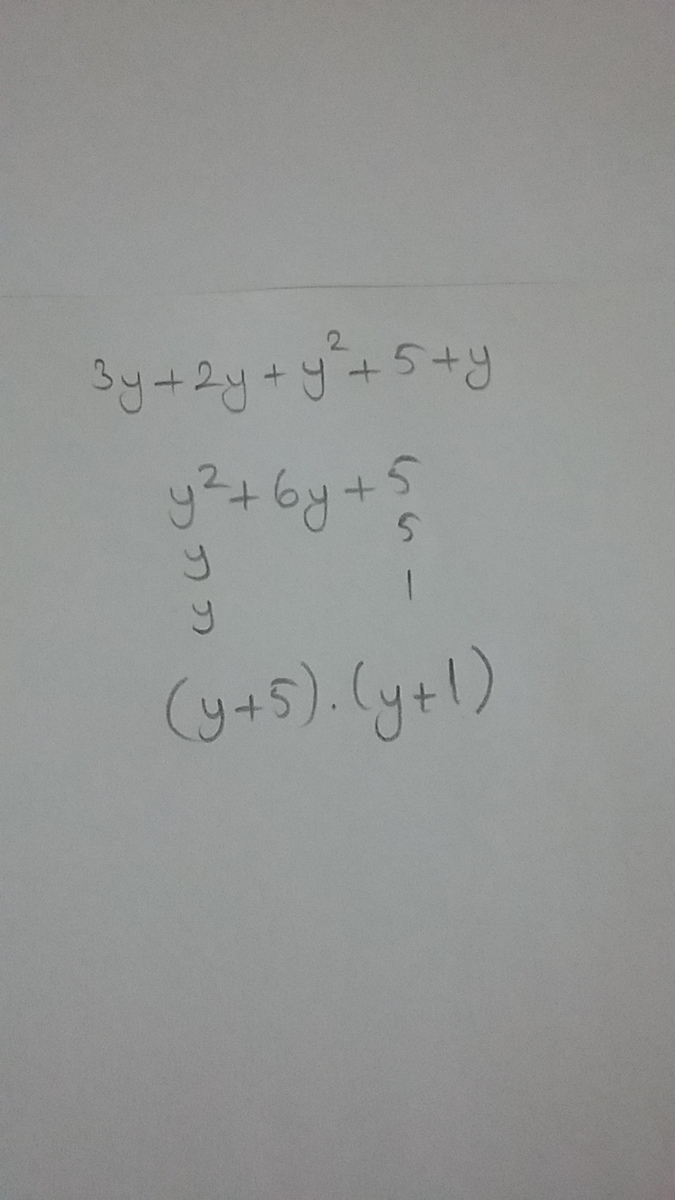 3y+2y+y²+5+y
y²+6y+5
y 5
y 1
(y+5).(y+1)